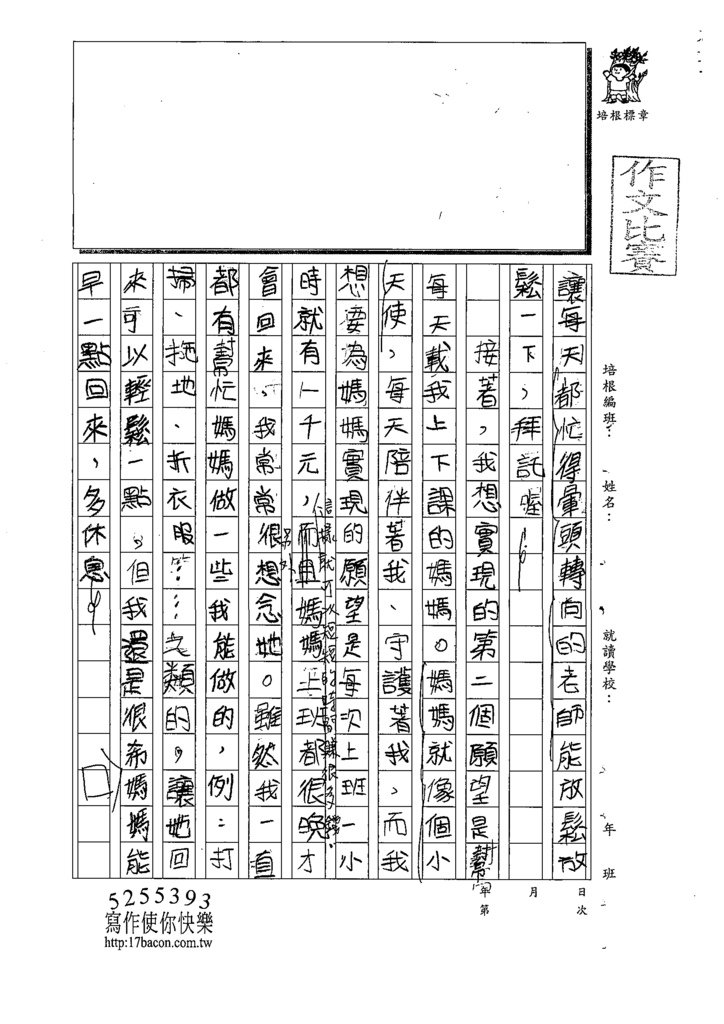 培根標章
作文比賽
培根編班：
姓名：
就讀學校：
年 班
讓每天都忙得暈頭轉向的老師能放鬆放
鬆一下，拜託喔！
接著，我想實現的第二個願望是幫
每天載我上下課的媽媽。媽媽就像個小
天使，每天陪伴著我、守護著我，而我
想要為媽媽實現的願望是每次上班一小
時就有一千元，而且媽媽上班都很晚才
這樣就可以短短的時間賺很多錢。
會回來，我常常很想念她。雖然我一直
都有幫忙媽媽做一些我能做的，例：打
掃、拖地、折衣服……之類的，讓她回
來可以輕鬆一點，但我還是很希媽媽能
早一點回來，多休息。
年 月 日
第 次
5255393
寫作使你快樂
http:17bacon.com.tw